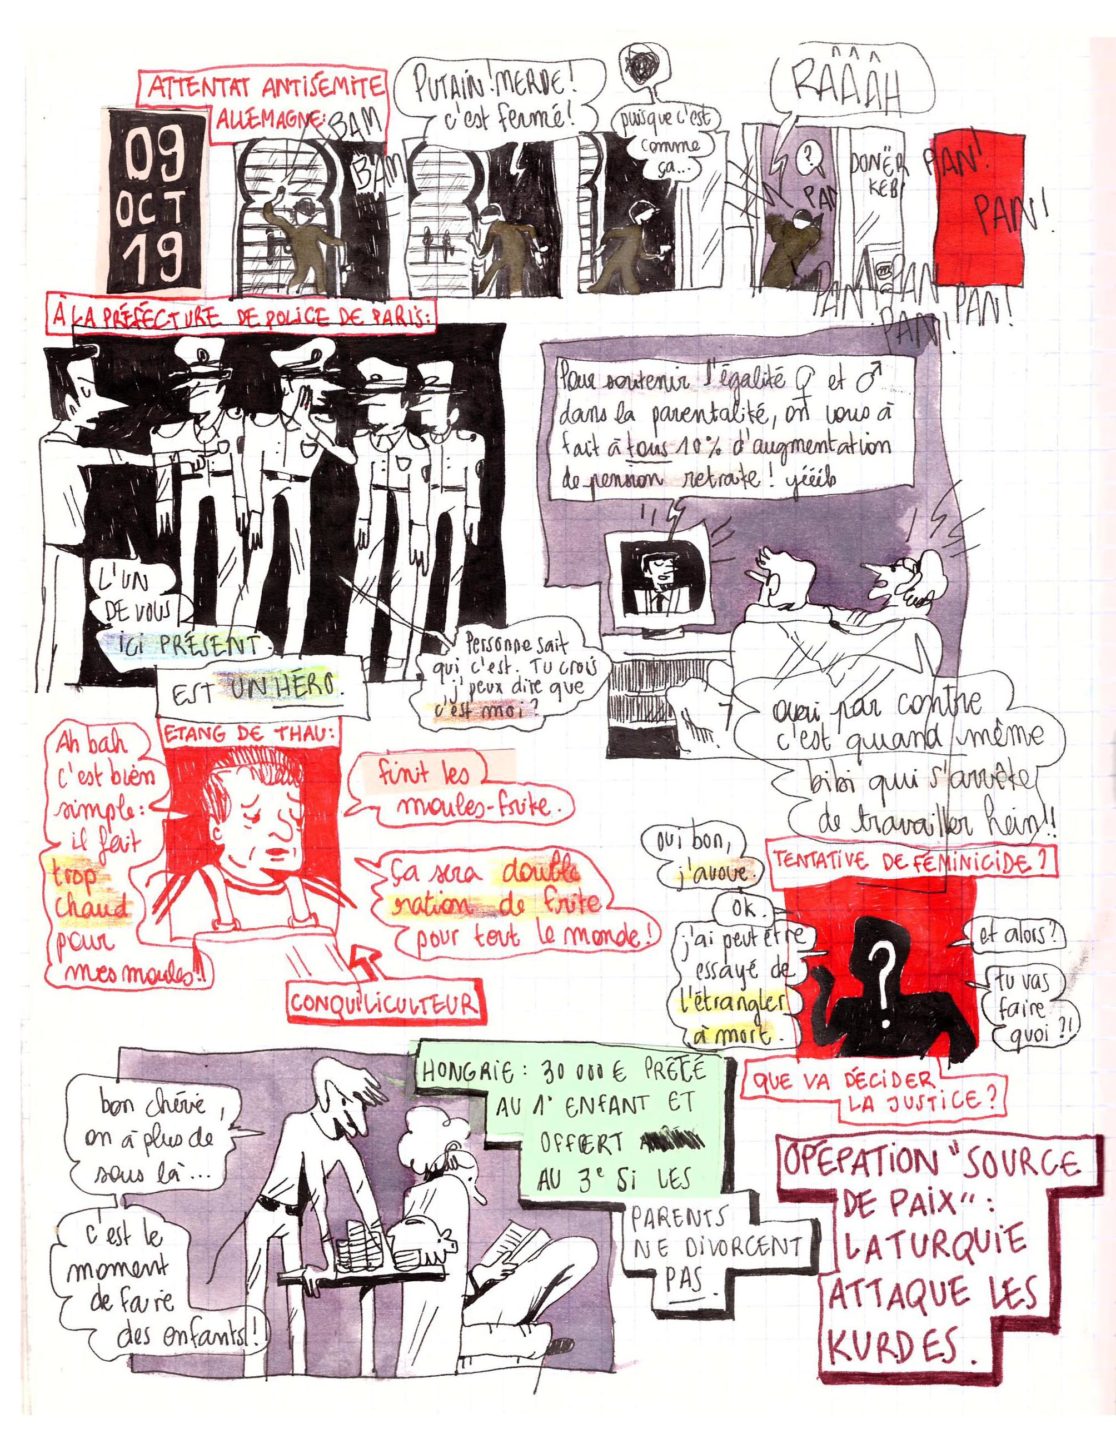 ATTENTAT ANTISÉMITE
ALLEMAGNE:
09
OCT
19
BAM
BAM
PUTAIN! MERDE!
c'est fermé!
puisque c'est
comme
ça...
RÂÂÂH
?
PAN
PAN
DONËR
KEB
PAN!
PAN!
PAN!
PAN
PAN!
PAN!
À LA PRÉFECTURE DE POLICE DE PARIS:
L'UN
DE VOUS
ICI PRÉSENT
EST UN HÉRO.
Personne sait
qui c'est. Tu crois
j'peux dire que
c'est moi?
Pour soutenir l'égalité ♀ et ♂
dans la parentalité, on vous à
fait à tous 10% d'augmentation
de pension retraite! yééib
oui par contre
c'est quand même
bibi qui s'arrête
de travailler hein!!
ETANG DE THAU:
Ah bah
c'est bien
simple:
il fait
trop
chaud
pour
mes moules!!
finit les
moules-frite.
Ça sera double
ration de frite
pour tout le monde!
CONQUILICULTEUR
TENTATIVE DE FÉMINICIDE?
oui bon,
j'avoue.
OK.
j'ai peut être
essayé de
l'étrangler
à mort.
?
et alors?
tu vas
faire
quoi?!
QUE VA DÉCIDER
LA JUSTICE?
bon chérie,
on à plus de
sous là...
c'est le
moment
de faire
des enfants!
HONGRIE: 30 000 € PRÊTÉ
AU 1° ENFANT ET
OFFERT
AU 3e SI LES
PARENTS
NE DIVORCENT
PAS.
OPÉRATION "SOURCE
DE PAIX":
LA TURQUIE
ATTAQUE LES
KURDES.